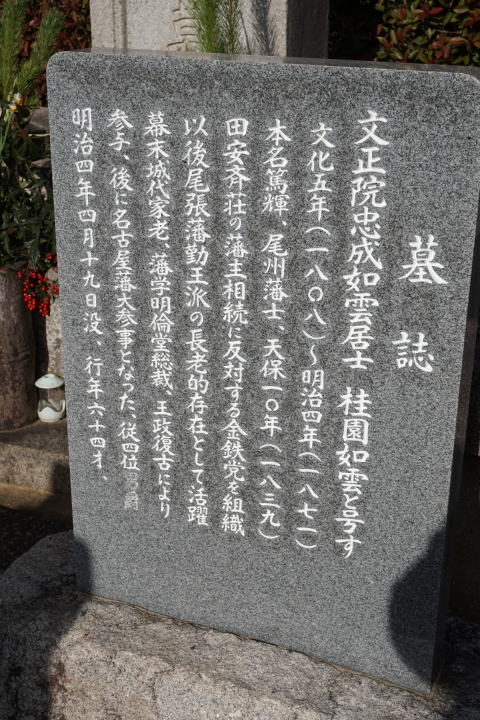 墓誌
文正院忠成如雲居士　桂園如雲と号す
文化五年(一八〇八)～明治四年(一八七一)
本名篤輝、尾州藩士、天保一〇年(一八三九)
田安斉荘の藩主相続に反対する金鉄党を組織
以後尾張藩勤王派の長老的存在として活躍
幕末城代家老、藩学明倫堂総裁、王政復古により
参与、後に名古屋藩大参事となった、従四位
明治四年四月十九日没、行年六十四才、